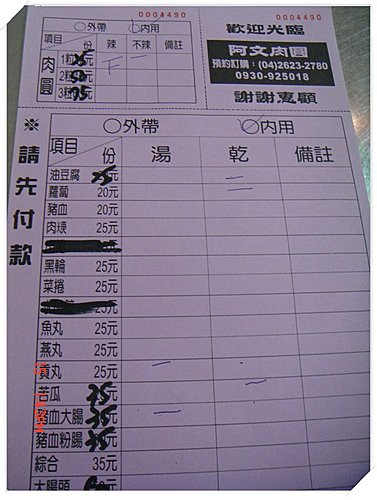 0004490
0004490
○外帶 ○內用
項目 份 辣 不辣 備註
肉圓
1粒25元
2粒50元
3粒75元
歡迎光臨
阿文肉圓
預約訂購：(04)2623-2780
0930-925018
謝謝惠顧
※請先付款
○外帶 ○內用
項目 份 湯 乾 備註
油豆腐 25元
蘿蔔 20元
豬血 20元
肉焿 25元
黑輪 25元
菜捲 25元
25元
魚丸 25元
蒸丸 25元
貢丸 25元
苦瓜 35元
豬血大腸 35元
豬血粉腸 35元
綜合 35元
大腸頭